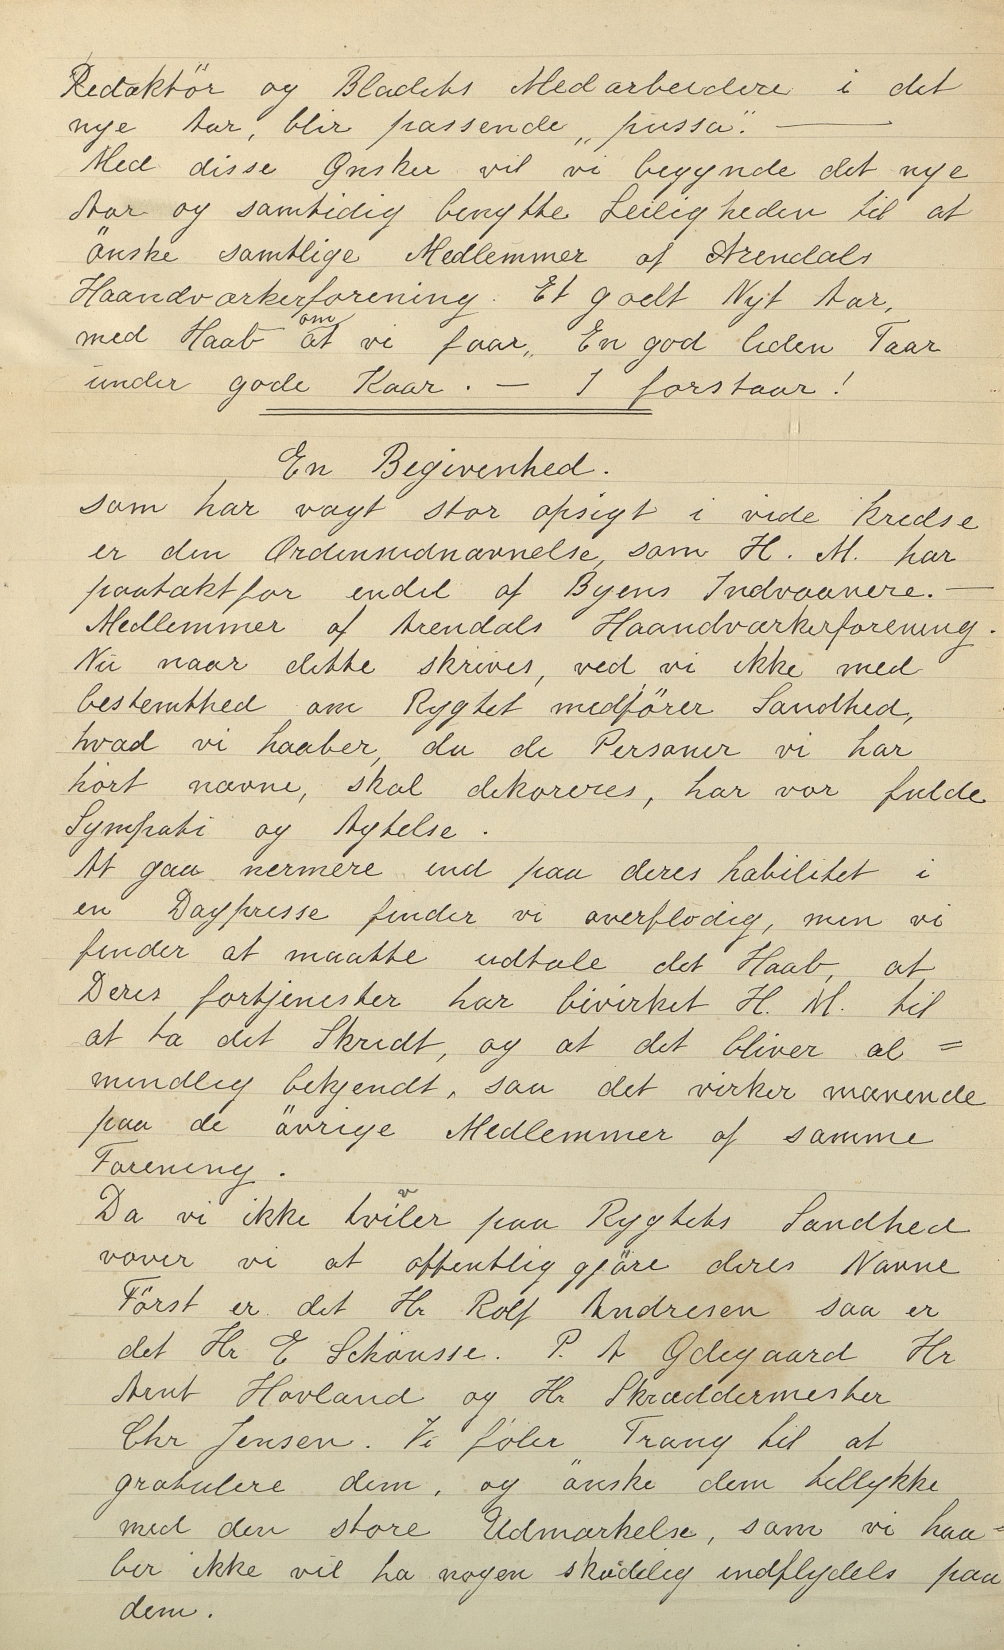 Redaktör og Bladets Medarbeidere i det
nye Aar, blir passende „pussa". —
Med disse Ønsker vil vi begynde det nye
Aar og samtidig benytte Leiligheden til at
önske samtlige Medlemmer af Arendals
Haandværkerforening. Et godt Nyt Aar,
med Haab om at vi faar„ En god liden Taar
under gode Kaar. — I forstaar!
En Begivenhed.
som har vagt stor opsigt i vide kredse
er den Ordensudnævnelse, som H. M. har
paatækt for endel af Byens Indvaanere. —
Medlemmer af Arendals Haandværkerforening.
Nu naar dette skrives, ved vi ikke med
bestemthed om Rygtet medförer Sandhed,
hvad vi haaber, da de Personer vi har
hört nævne, skal dekoreres, har vor fulde
Sympati og Agtelse.
At gaa nermere ind paa deres habilitet i
en Dagpresse finder vi overflödig, men vi
finder at maatte udtale det Haab, at
Deres fortjenester har bivirket H. M. til
at ta det Skridt, og at det bliver al=
mindlig bekjendt, saa det virker manende
paa de övrige Medlemmer af samme
Forening.
Da vi ikke tviler paa Rygtets Sandhed
vover vi at offentlig gjöre deres Navne
Först er det Hr Rolf Andresen saa er
det Hr E Schönsse. P. A Ødegaard Hr
Arnt Hovland og Hr Skræddermester
Chr Jensen. Vi föler Trang til at
gratulere dem, og önske dem tillykke
med den store Udmærkelse, som vi haa=
ber ikke vil ha nogen skadelig indflydels paa
dem.